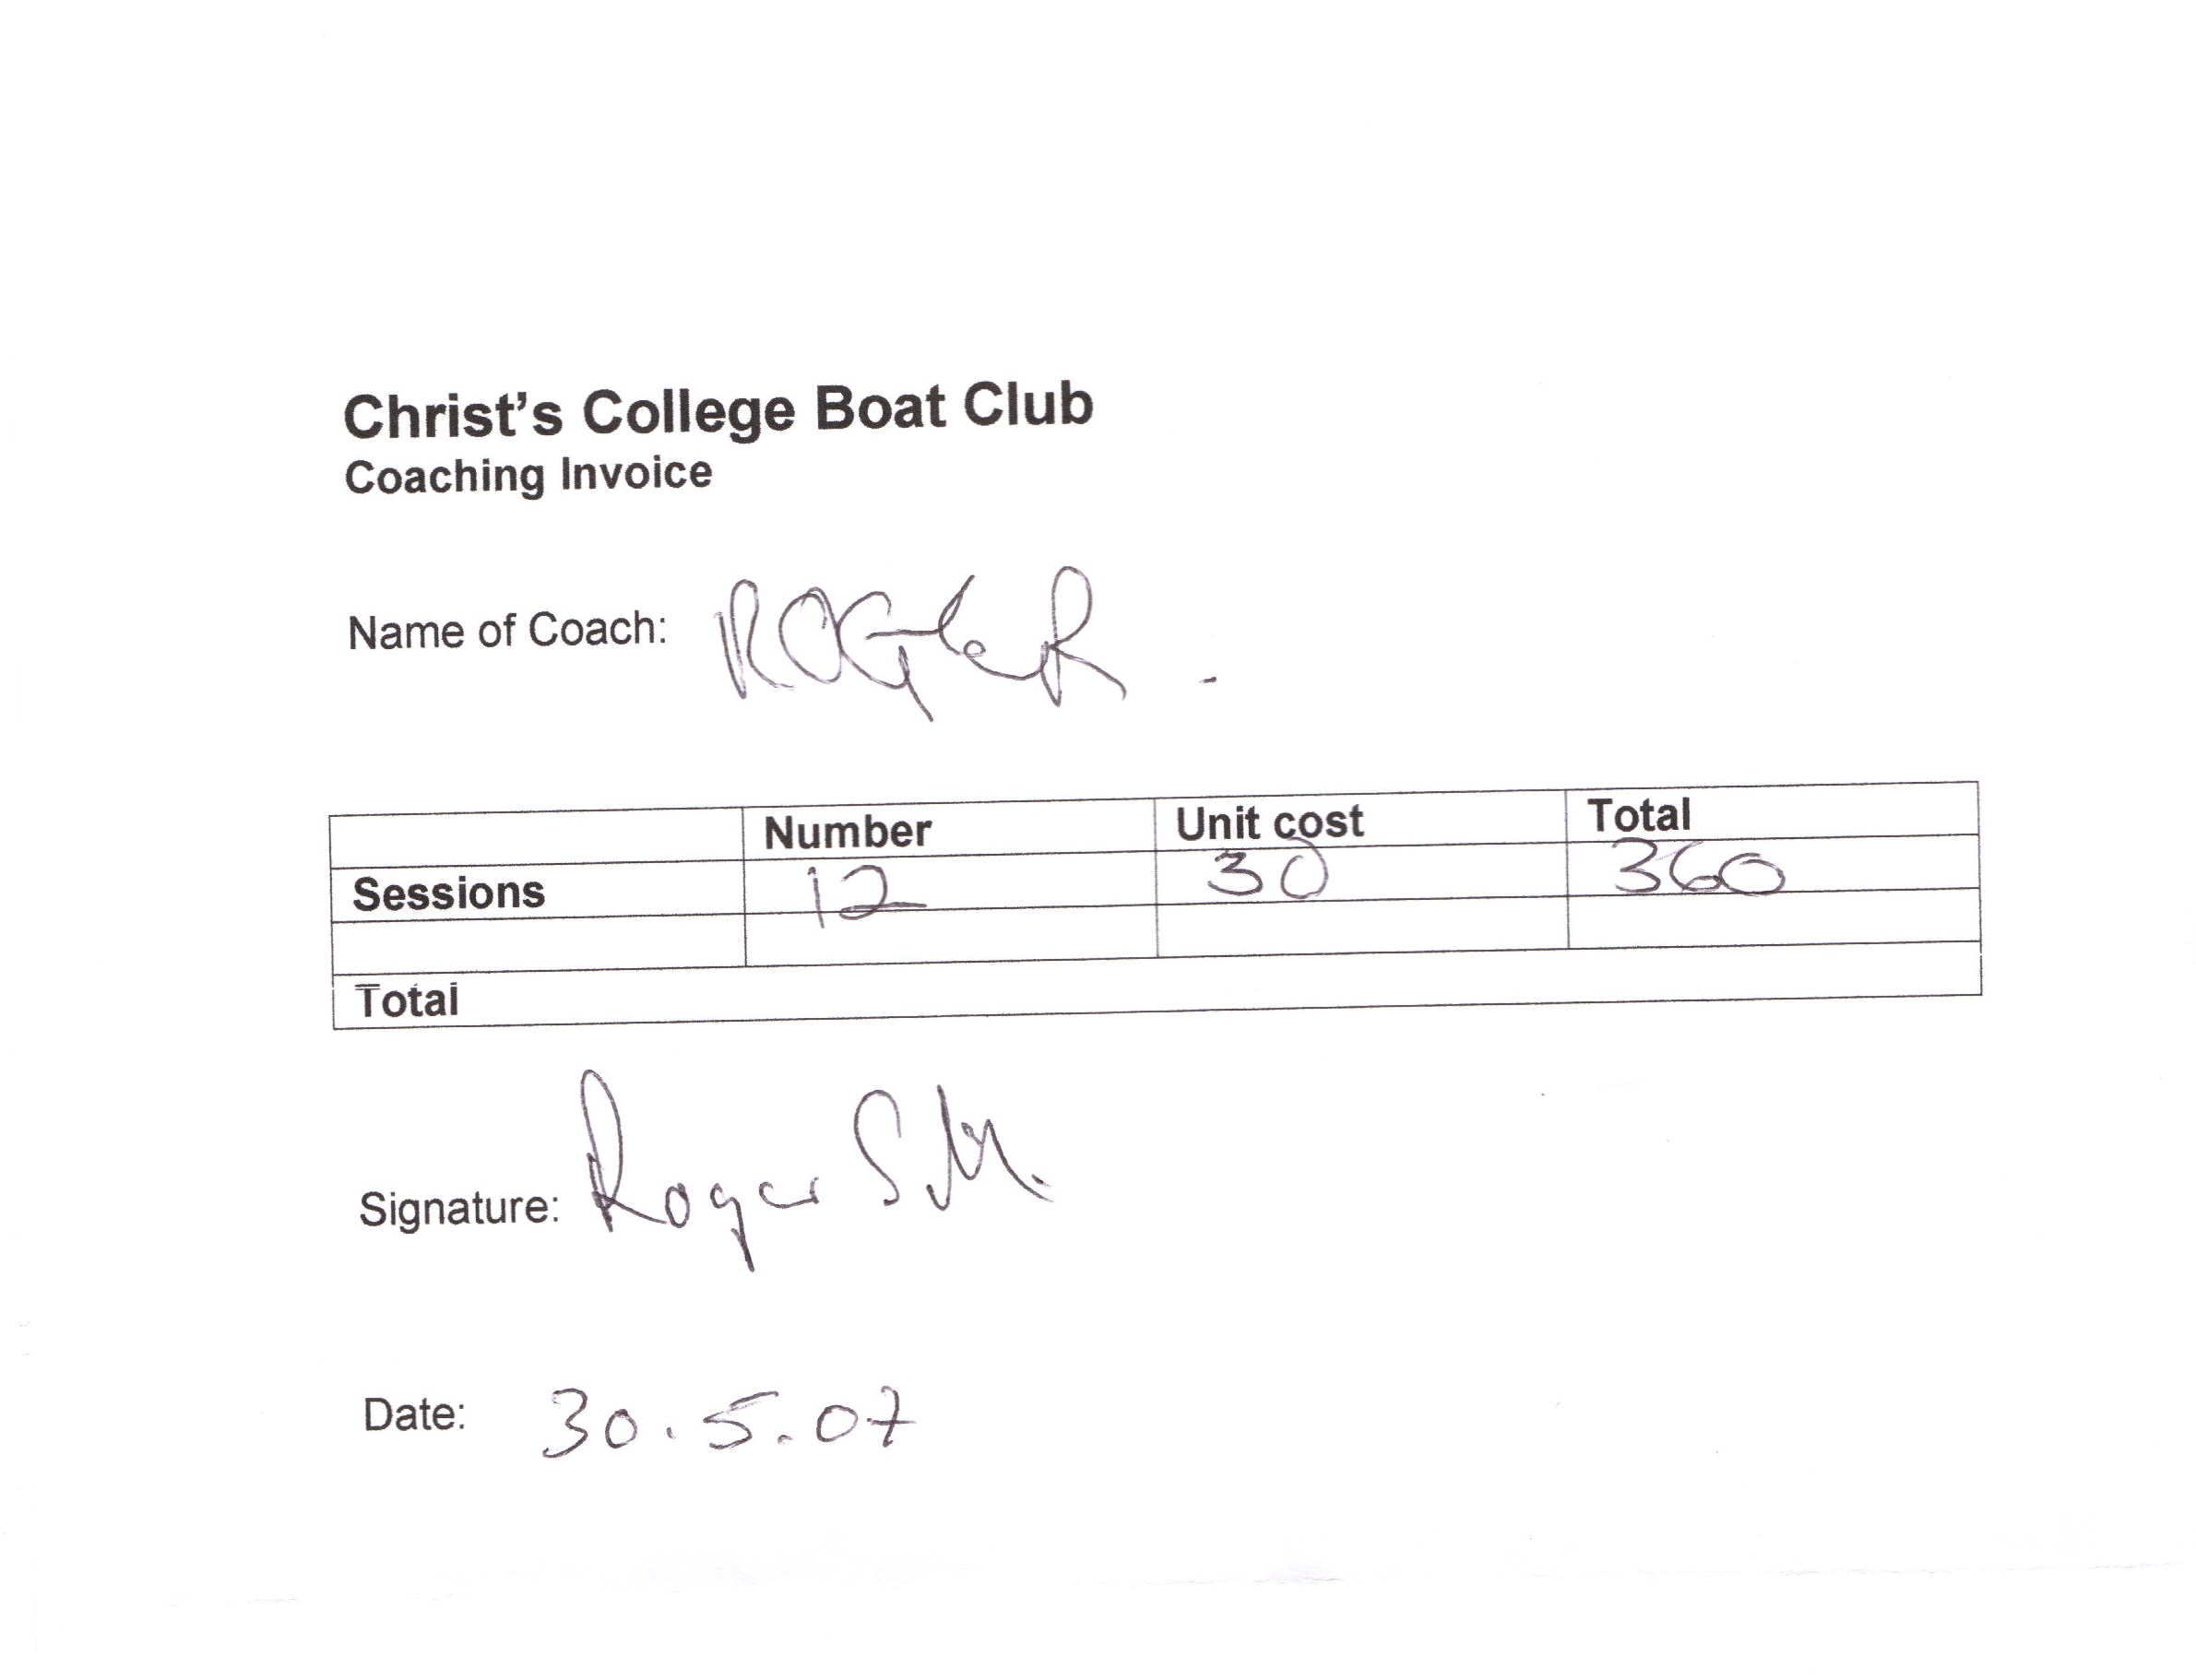 Christ's College Boat Club
Coaching Invoice
Name of Coach: ROGER.
Number Unit cost Total
Sessions 12 30 360
Total
Signature: Roger S.M.
Date: 30.5.07